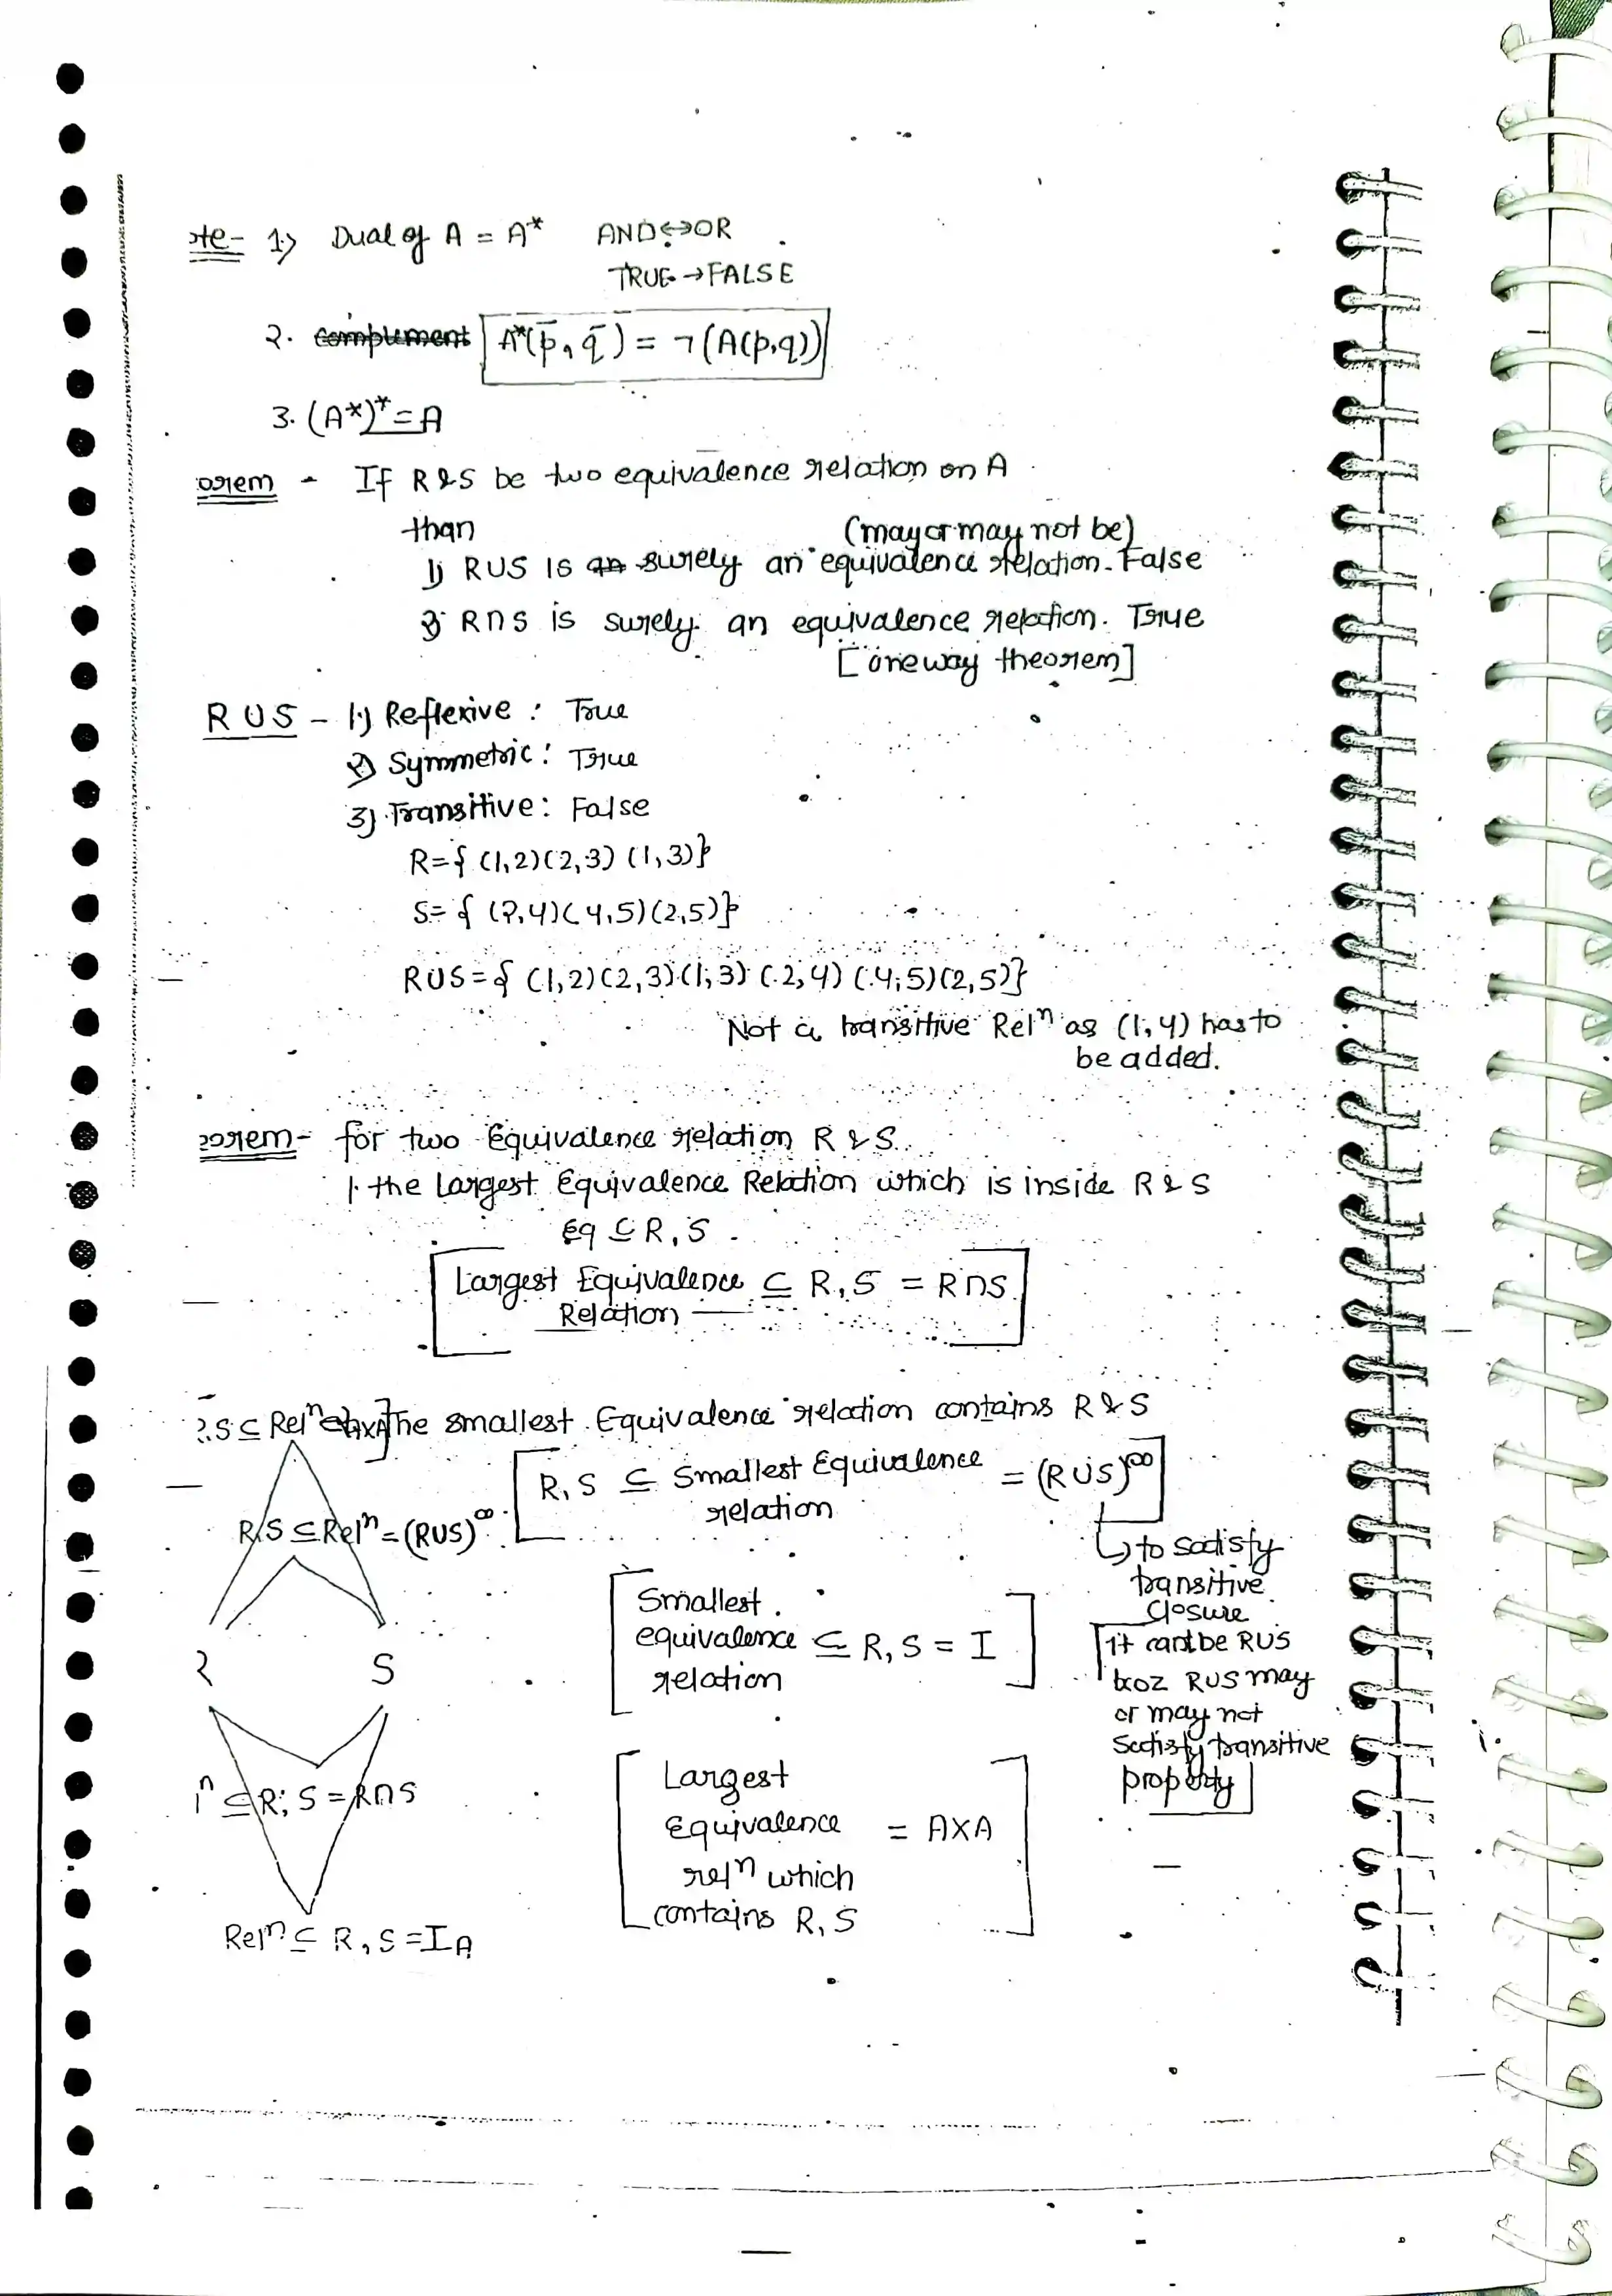 te- 1) Dual of A = A* AND↔OR
TRUE→FALSE
2. complement A*(p̄, q̄) = ¬(A(p,q))
3. (A*)* = A
orem - If R & S be two equivalence relation on A
than (may or may not be)
1) RUS is an surely an equivalence relation. False
2) R∩S is surely an equivalence relation. True
[one way theorem]
RUS - 1.) Reflexive : True
2) Symmetric : True
3) Transitive : False
R={ (1,2)(2,3) (1,3)}
S= { (2,4)(4,5)(2,5)}
RUS={ (1,2)(2,3)(1,3)(2,4)(4,5)(2,5)}
Not a transitive Relⁿ as (1,4) has to
be added.
orem- for two Equivalence relation R & S.
1. the Largest Equivalence Relation which is inside R & S
Eq ⊆ R, S
Largest Equivalence ⊆ R, S = R∩S
Relation
S ⊆ Relⁿ AxA The smallest Equivalence relation contains R & S
R, S ⊆ Smallest Equivalence = (RUS)^∞
relation
R,S ⊆ Relⁿ = (RUS)^∞
to satisfy
transitive
closure
Smallest
equivalence ⊆ R, S = I
relation
it cant be RUS
bcoz RUS may
or may not
satisfy transitive
property
S
ⁿ ⊆ R, S = R∩S
Largest
Equivalence = AXA
relⁿ which
contains R, S
Relⁿ ⊆ R, S = I_A